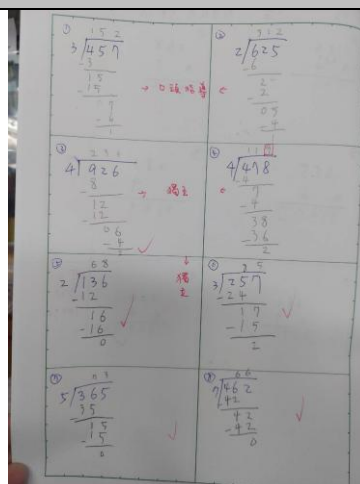 ①
152
3/457
-3
15
-15
7
-6
1
②
312
2/625
-6
2
-2
05
-4
1
→ 口頭指導 ←
③
231
4/926
-8
12
-12
06
-4
2
→ 獨立
④
4/478
-4
7
-4
38
-36
2
↓
獨立
⑤
68
2/136
-12
16
-16
0
⑥
3/257
-24
17
-15
2
⑦
5/365
35
15
-15
0
⑧
66
7/462
42
42
-42
0